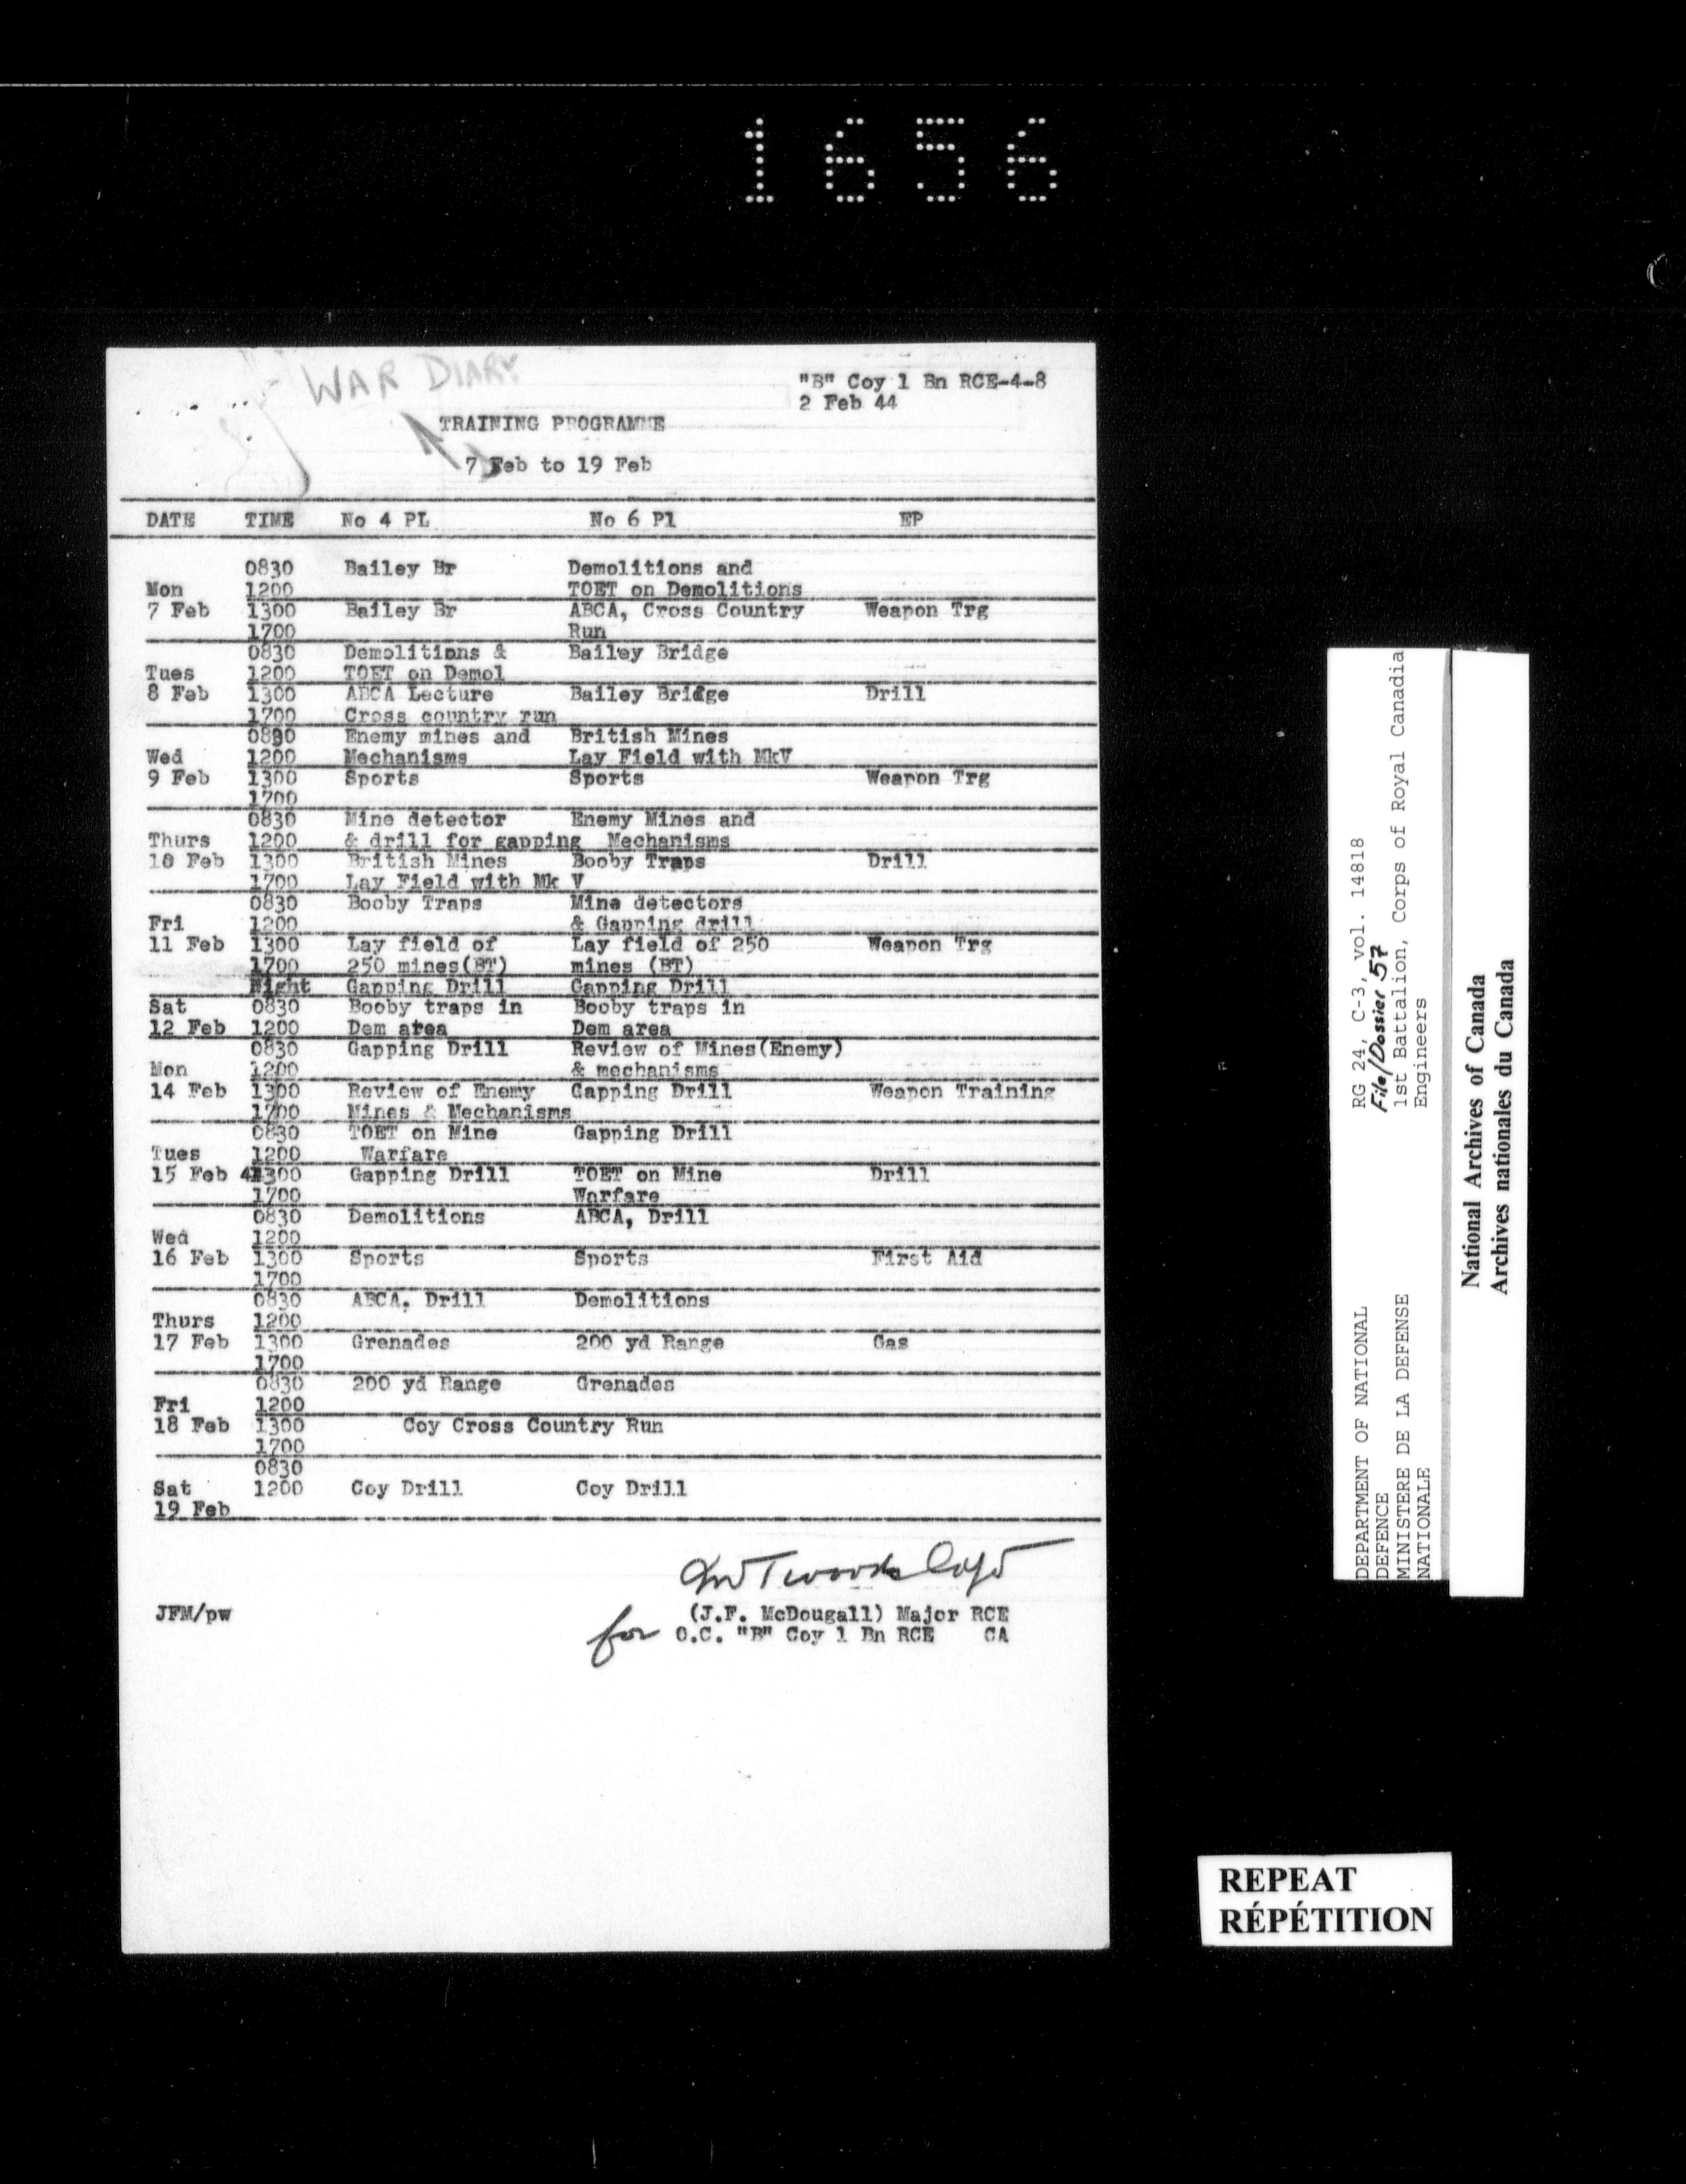 1656
WAR DIARY
"B" Coy 1 Bn RCE-4-8
2 Feb 44
TRAINING PROGRAMME
7 Feb to 19 Feb
DATE TIME No 4 PL No 6 Pl EP
0830 Bailey Br Demolitions and
Mon 1200 TOET on Demolitions
7 Feb 1300 Bailey Br ABCA, Cross Country Weapon Trg
1700 Run
0830 Demolitions & Bailey Bridge
Tues 1200 TOET on Demol
8 Feb 1300 ABCA Lecture Bailey Bridge Drill
1700 Cross country run
0830 Enemy mines and British Mines
Wed 1200 Mechanisms Lay Field with MkV
9 Feb 1300 Sports Sports Weapon Trg
1700
0830 Mine detector Enemy Mines and
Thurs 1200 & drill for gapping Mechanisms
10 Feb 1300 British Mines Booby Traps Drill
1700 Lay Field with Mk V
0830 Booby Traps Mine detectors
Fri 1200 & Gapping drill
11 Feb 1300 Lay field of Lay field of 250 Weapon Trg
1700 250 mines(BT) mines (BT)
Night Gapping Drill Gapping Drill
Sat 0830 Booby traps in Booby traps in
12 Feb 1200 Dem area Dem area
0830 Gapping Drill Review of Mines(Enemy)
Mon 1200 & mechanisms
14 Feb 1300 Review of Enemy Gapping Drill Weapon Training
1700 Mines & Mechanisms
0830 TOET on Mine Gapping Drill
Tues 1200 Warfare
15 Feb 1300 Gapping Drill TOET on Mine Drill
1700 Warfare
0830 Demolitions ABCA, Drill
Wed 1200
16 Feb 1300 Sports Sports First Aid
1700
0830 ABCA. Drill Demolitions
Thurs 1200
17 Feb 1300 Grenades 200 yd Range Gas
1700
0830 200 yd Range Grenades
Fri 1200
18 Feb 1300 Coy Cross Country Run
1700
0830
Sat 1200 Coy Drill Coy Drill
19 Feb
Capt
JFM/pw (J.F. McDougall) Major RCE
for O.C. "B" Coy 1 Bn RCE CA
DEPARTMENT OF NATIONAL RG 24, C-3, vol. 14818
DEFENCE File/Dossier 57
MINISTERE DE LA DEFENSE 1st Battalion, Corps of Royal Canadia
NATIONALE Engineers
National Archives of Canada
Archives nationales du Canada
REPEAT
RÉPÉTITION